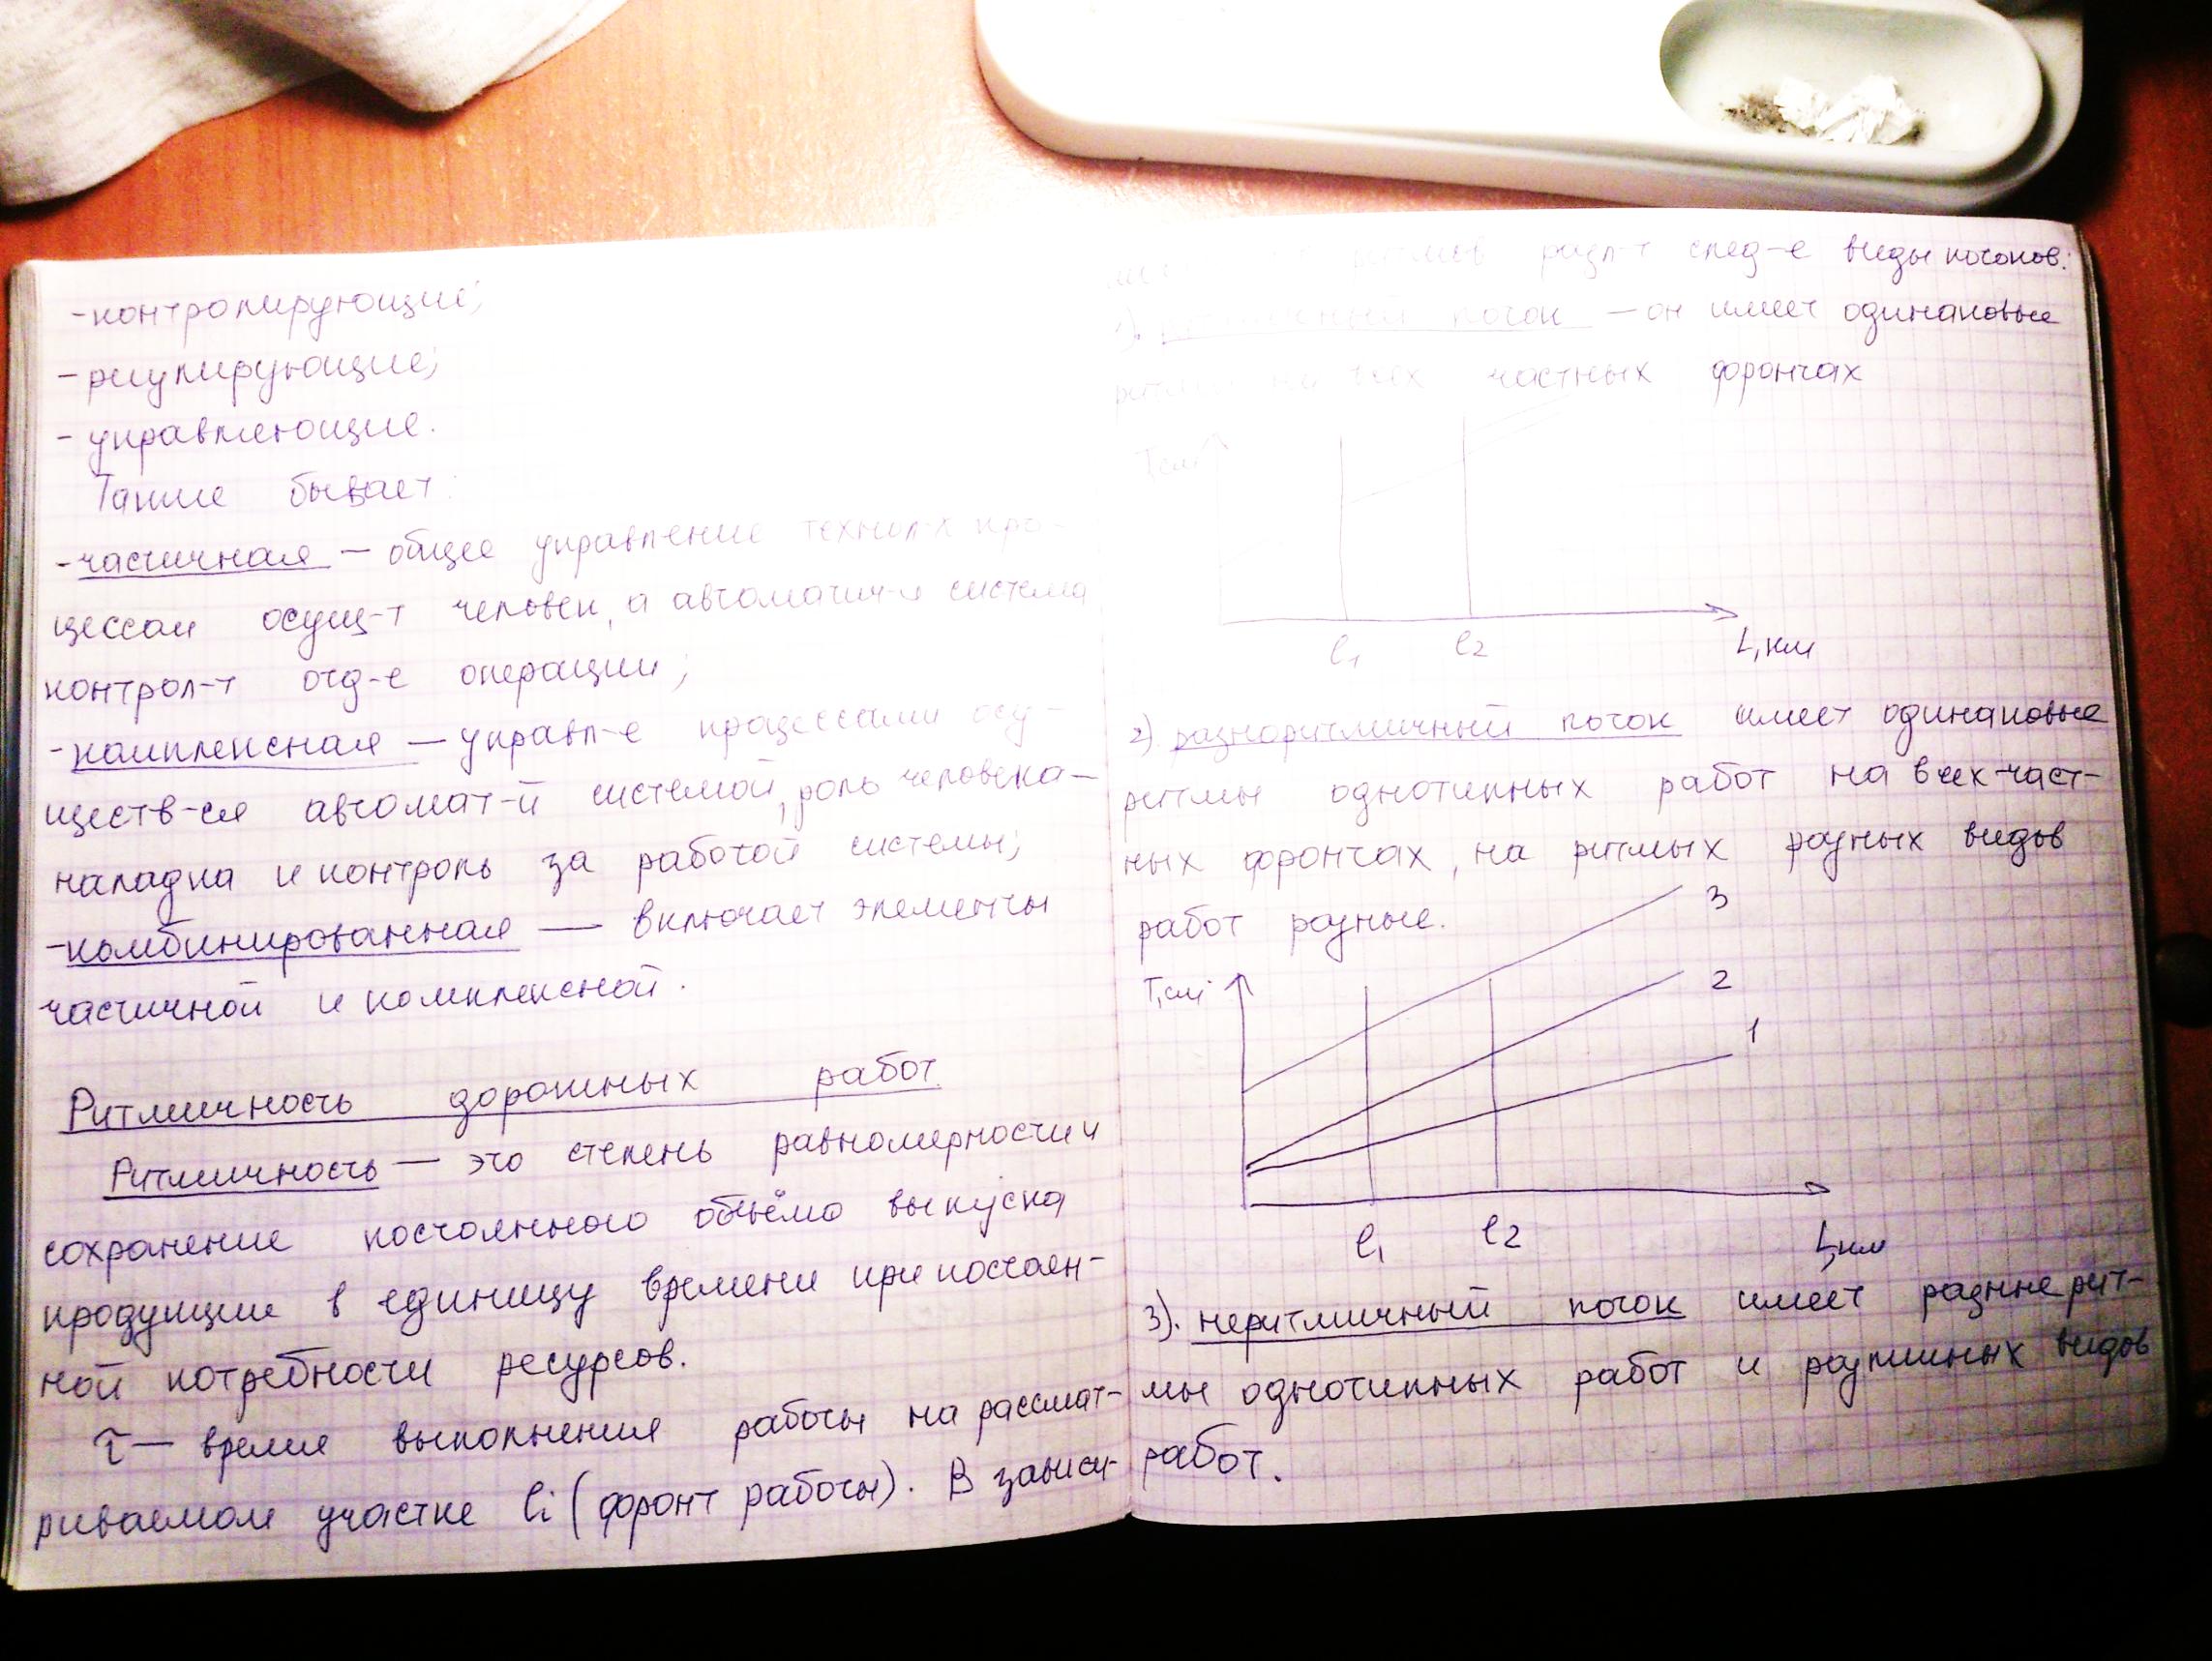 -контролирующие;
-регулирующие;
-управляющие.
Также бывает:
-частичная — общее управление технол-х про-
цессом осущ-т человек, а автоматич-я система
контрол-т отд-е операции;
-комплексная — управл-е процессами осу-
ществ-ся автомат-й системой, роль человека-
наладка и контроль за работой системы;
-комбинированная — включает элементы
частичной и комплексной.
Ритмичность дорожных работ.
Ритмичность — это степень равномерности и
сохранение постоянного объёма выпуска
продукции в единицу времени при постоян-
ной потребности ресурсов.
τ — время выполнения работы на рассмат-
риваемом участке li (фронт работы). В зависи-
ритмов разл-т след-е виды потоков:
1). поток — он имеет одинаковые
ритмы на всех частных фронтах
T,см
l1 l2 L,км
2) разноритмичный поток имеет одинаковые
ритмы однотипных работ на всех част-
ных фронтах, на ритмых разных видов
работ разные.
3
T,см 2
1
l1 l2 L,км
3). неритмичный поток имеет разные рит-
мы однотипных работ и различных видов
работ.